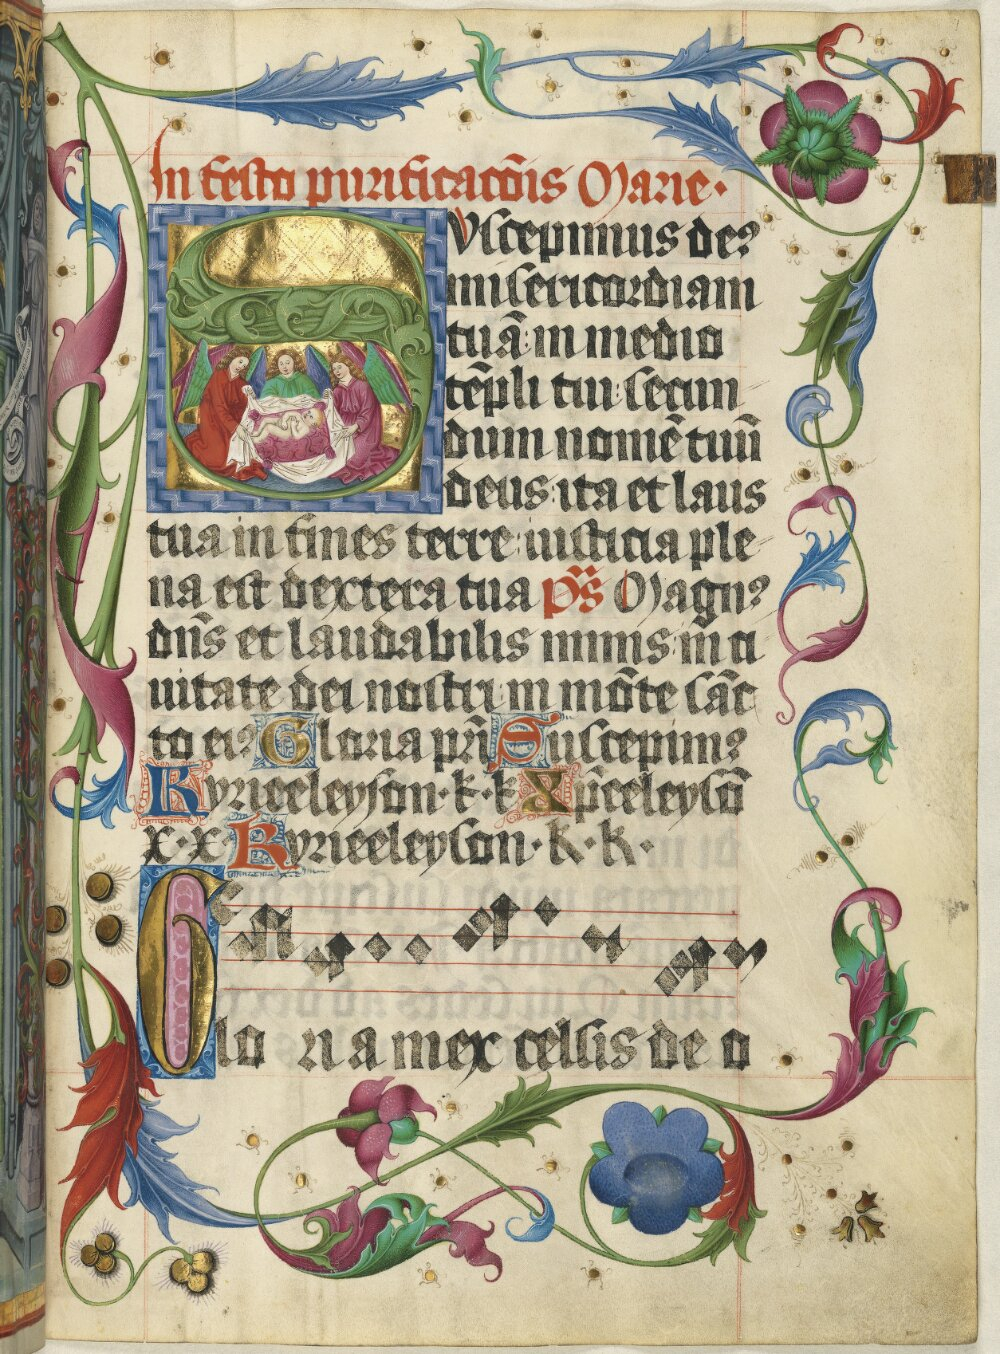 In festo purificacōis Marie·
Suscepimus deꝰ
misericordiam
tuā: in medio
tēpli tui: secun
dum nomē tuū
deus: ita et laus
tua in fines terre: iusticia ple
na est dextera tua p̄s Magnꝰ
dn̄s et laudabilis nimis: in ci
uitate dei nostri: in mōte sāc
to eiꝰ Gloria pr̄i Suscepimꝰ
Kyrieeleyson· k· k· Xp̄celeysō
x· x· Kyrieeleyson· k· k·
Glo ri a in ex celsis de o